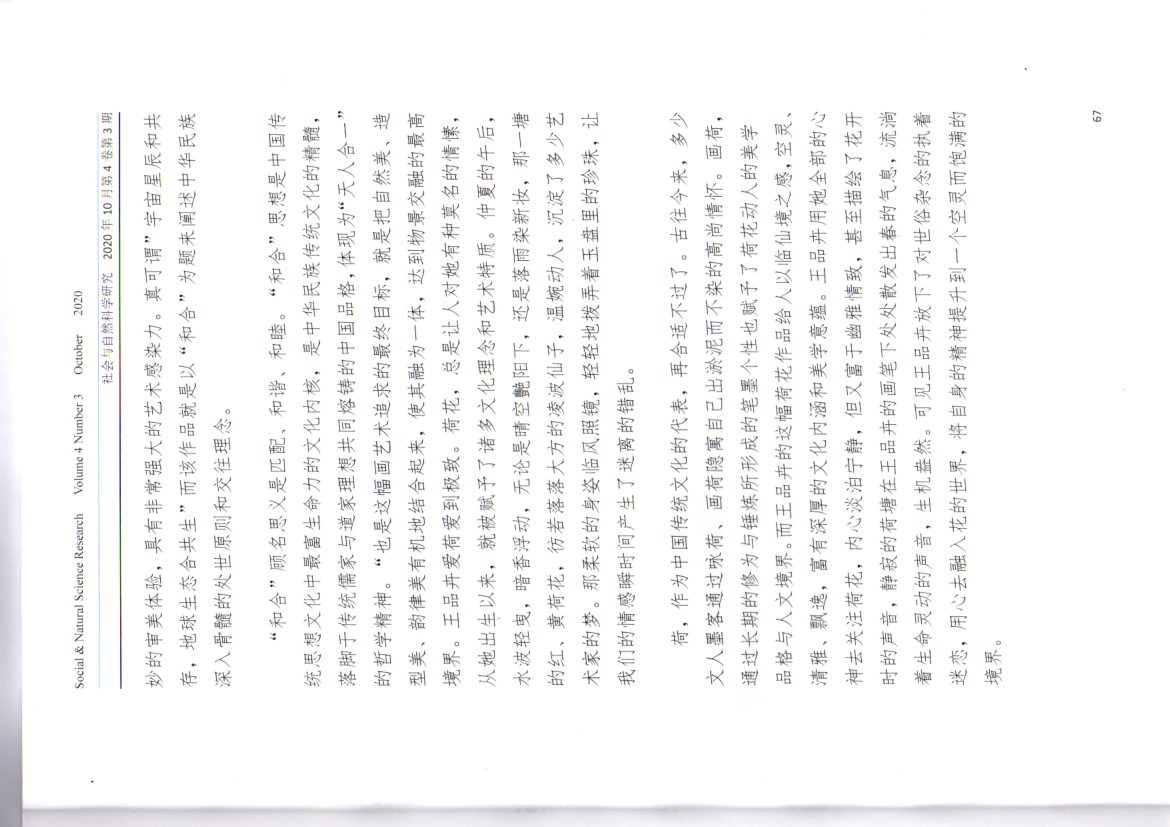 Social & Natural Science Research Volume 4 Number 3 October 2020
社会与自然科学研究 2020 年 10 月第 4 卷第 3 期
妙的审美体验，具有非常强大的艺术感染力。真可谓”宇宙星辰和共
存，地球生态合共生”而该作品就是以“和合”为题来阐述中华民族
深入骨髓的处世原则和交往理念。
“和合”顾名思义是匹配、和谐、和睦。“和合”思想是中国传
统思想文化中最富生命力的文化内核，是中华民族传统文化的精髓，
落脚于传统儒家与道家理想共同熔铸的中国品格，体现为“天人合一”
的哲学精神。“也是这幅画艺术追求的最终目标，就是把自然美、造
型美、韵律美有机地结合起来，使其融为一体，达到物景交融的最高
境界。王品卉爱荷爱到极致。荷花，总是让人对她有种莫名的情愫，
从她出生以来，就被赋予了诸多文化理念和艺术特质。仲夏的午后，
水波轻曳，暗香浮动，无论是晴空艷阳下，还是落雨染新妆，那一塘
的红、黄荷花，彷若落落大方的凌波仙子，温婉动人，沉淀了多少艺
术家的梦。那柔软的身姿临风照镜，轻轻地拨弄着玉盘里的珍珠，让
我们的情感瞬时间产生了迷离的错乱。
荷，作为中国传统文化的代表，再合适不过了。古往今来，多少
文人墨客通过咏荷、画荷隐寓自己出淤泥而不染的高尚情怀。画荷，
通过长期的修为与锤炼所形成的笔墨个性也赋予了荷花动人的美学
品格与人文境界。而王品卉的这幅荷花作品给人以临仙境之感，空灵、
清雅、飘逸，富有深厚的文化内涵和美学意蕴。王品卉用她全部的心
神去关注荷花，内心淡泊宁静，但又富于幽雅情致，甚至描绘了花开
时的声音，静寂的荷塘在王品卉的画笔下处处散发出春的气息，流淌
着生命灵动的声音，生机盎然。可见王品卉放下了对世俗杂念的执着
迷恋，用心去融入花的世界，将自身的精神提升到一个空灵而饱满的
境界。
67